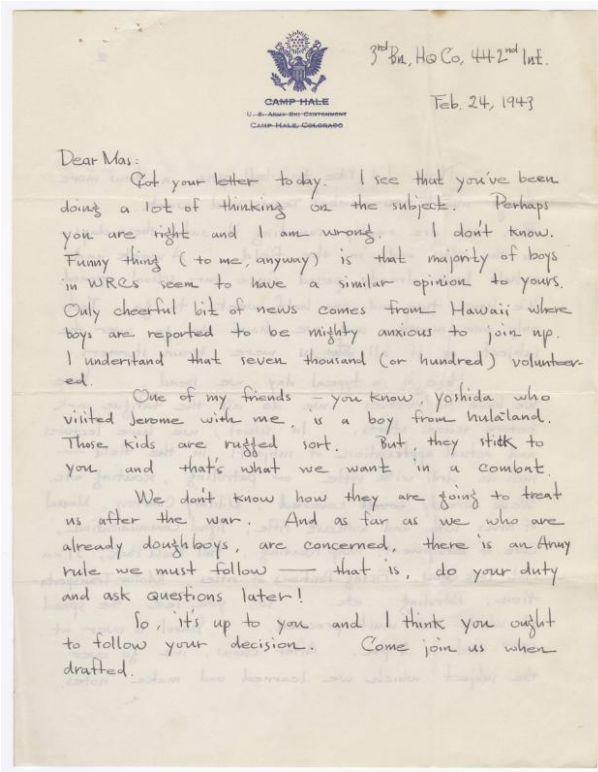 3rd Bn, HQ Co, 442nd Inf.
CAMP HALE
U. S. ARMY SKI CANTONMENT
CAMP HALE, COLORADO
Feb. 24, 1943
Dear Mas:
Got your letter today. I see that you've been
doing a lot of thinking on the subject. Perhaps
you are right and I am wrong. I don't know.
Funny thing (to me, anyway) is that majority of boys
in WRCs seem to have a similar opinion to yours.
Only cheerful bit of news comes from Hawaii where
boys are reported to be mighty anxious to join up.
I understand that seven thousand (or hundred) volunteer-
ed.
One of my friends – you know, Yoshida who
visited Jerome with me, is a boy from hulaland.
Those kids are rugged sort. But, they stick to
you and that's what we want in a combat.
We don't know how they are going to treat
us after the war. And as far as we who are
already doughboys, are concerned, there is an Army
rule we must follow — that is, do your duty
and ask questions later!
So, it's up to you and I think you ought
to follow your decision. Come join us when
drafted.